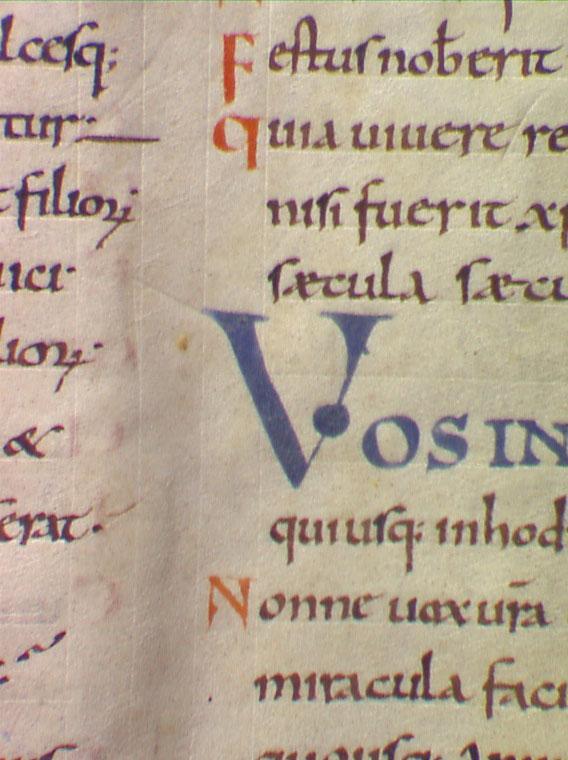 lcesq:
tur:
filiorꝝ
uici
liorꝝ
&
erat.
Festus nob̄ erit
quia uiuere re
nisi fuerit xp
sæcula sæcu
VOS IN
quiusq: inhod
Nonne uox ur̄a
miracula faci